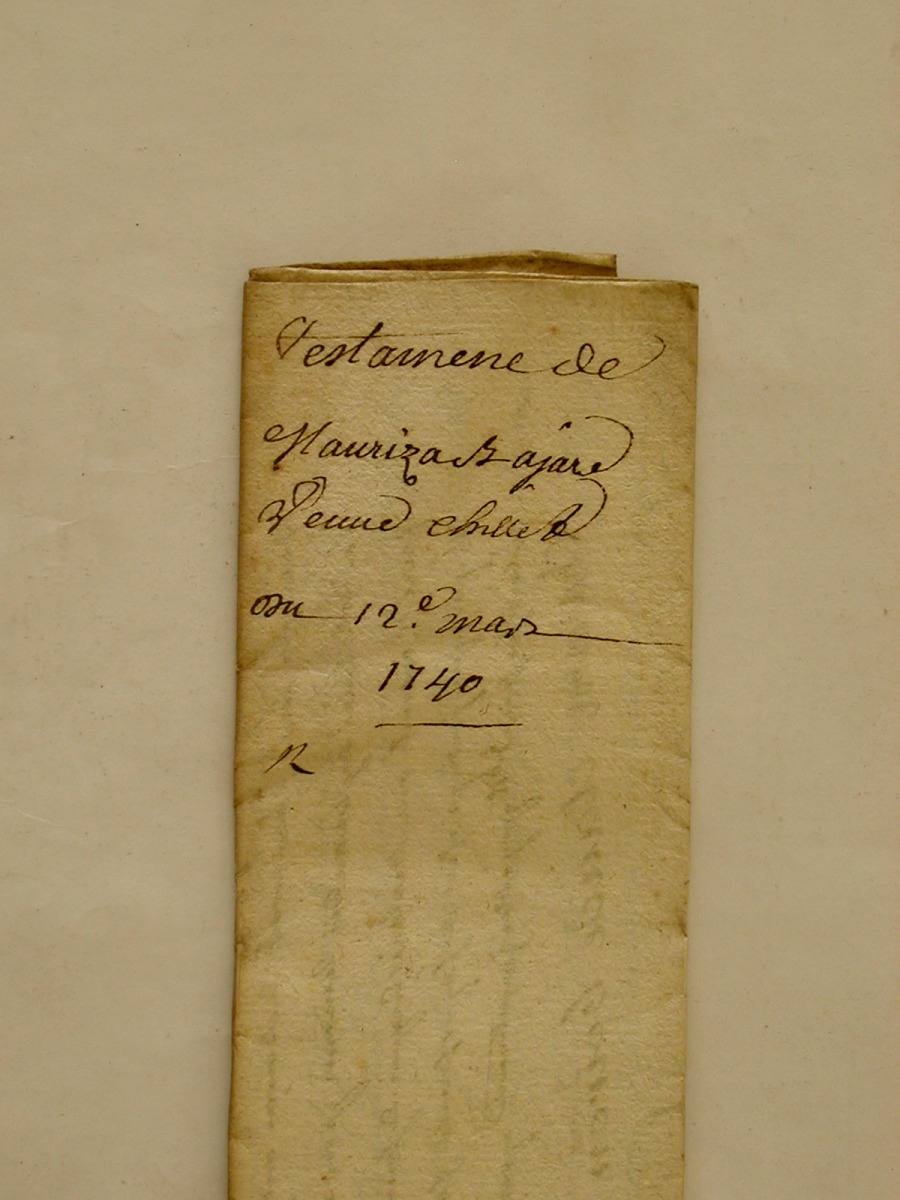 Testament de
Mauriza Bajard
Veuve
Du 12.e mars
1740
R